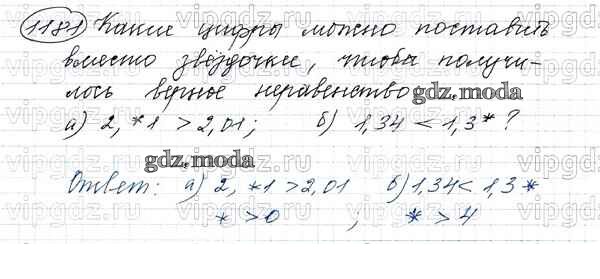 1181 Какие цифры можно поставить
вместо звёздочки, чтобы получи-
лось верное неравенство gdz.moda
а) 2,*1 > 2,01; б) 1,34 < 1,3* ?
gdz.moda
Ответ: а) 2, *1 > 2,01 б) 1,34 < 1,3 *
* > 0 ; * > 4